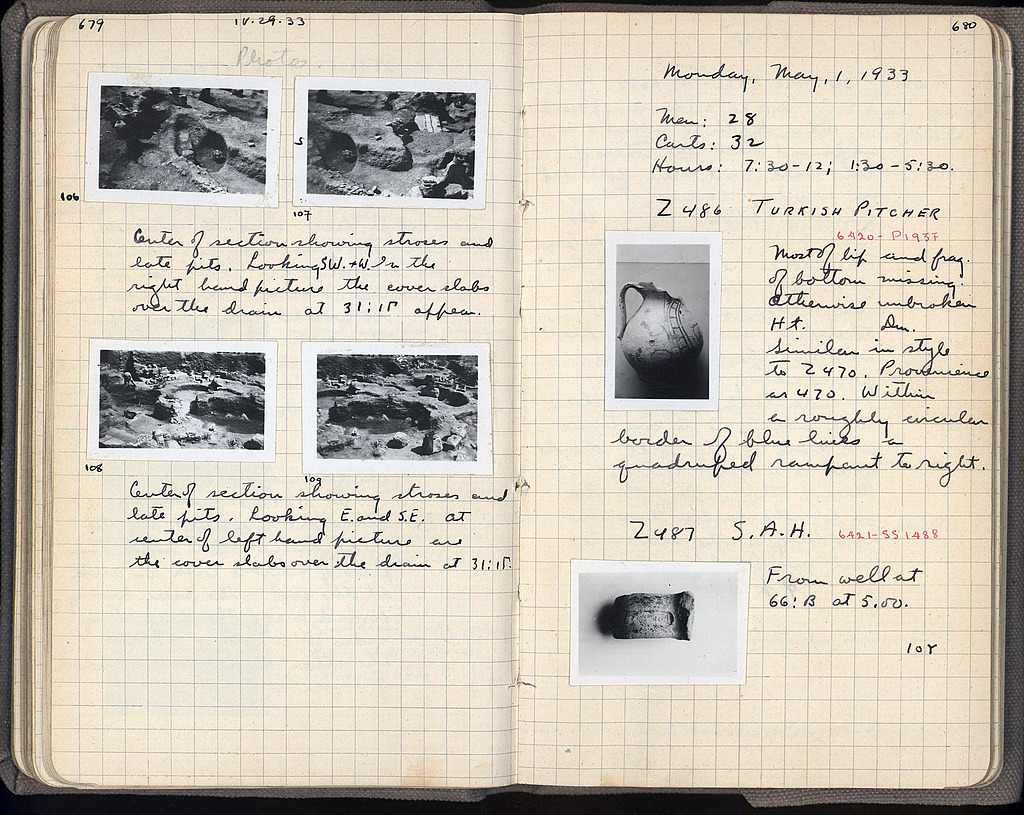 679
IV.29.33
Photos.
5
106
107
Center of section showing stroses and
late pits. Looking SW. + W. In the
right hand picture the cover slabs
over the drain at 31:ΙΓ appear.
108
109
Center of section showing stroses and
late pits. Looking E. and S.E. at
center of left hand picture are
the cover slabs over the drain at 31:ΙΓ.
680
Monday, May, 1, 1933
Men: 28
Carts: 32
Hours: 7:30-12; 1:30-5:30.
Z 486 TURKISH PITCHER
6420-P1937
Most of lip and frag.
of bottom missing.
Otherwise unbroken
Ht. Dm.
Similar in style
to Z 470. Provenience
as 470. Within
a roughly circular
border of blue lines a
quadruped rampant to right.
Z 487 S.A.H. 6421-SS1488
From well at
66:B at 5.00.